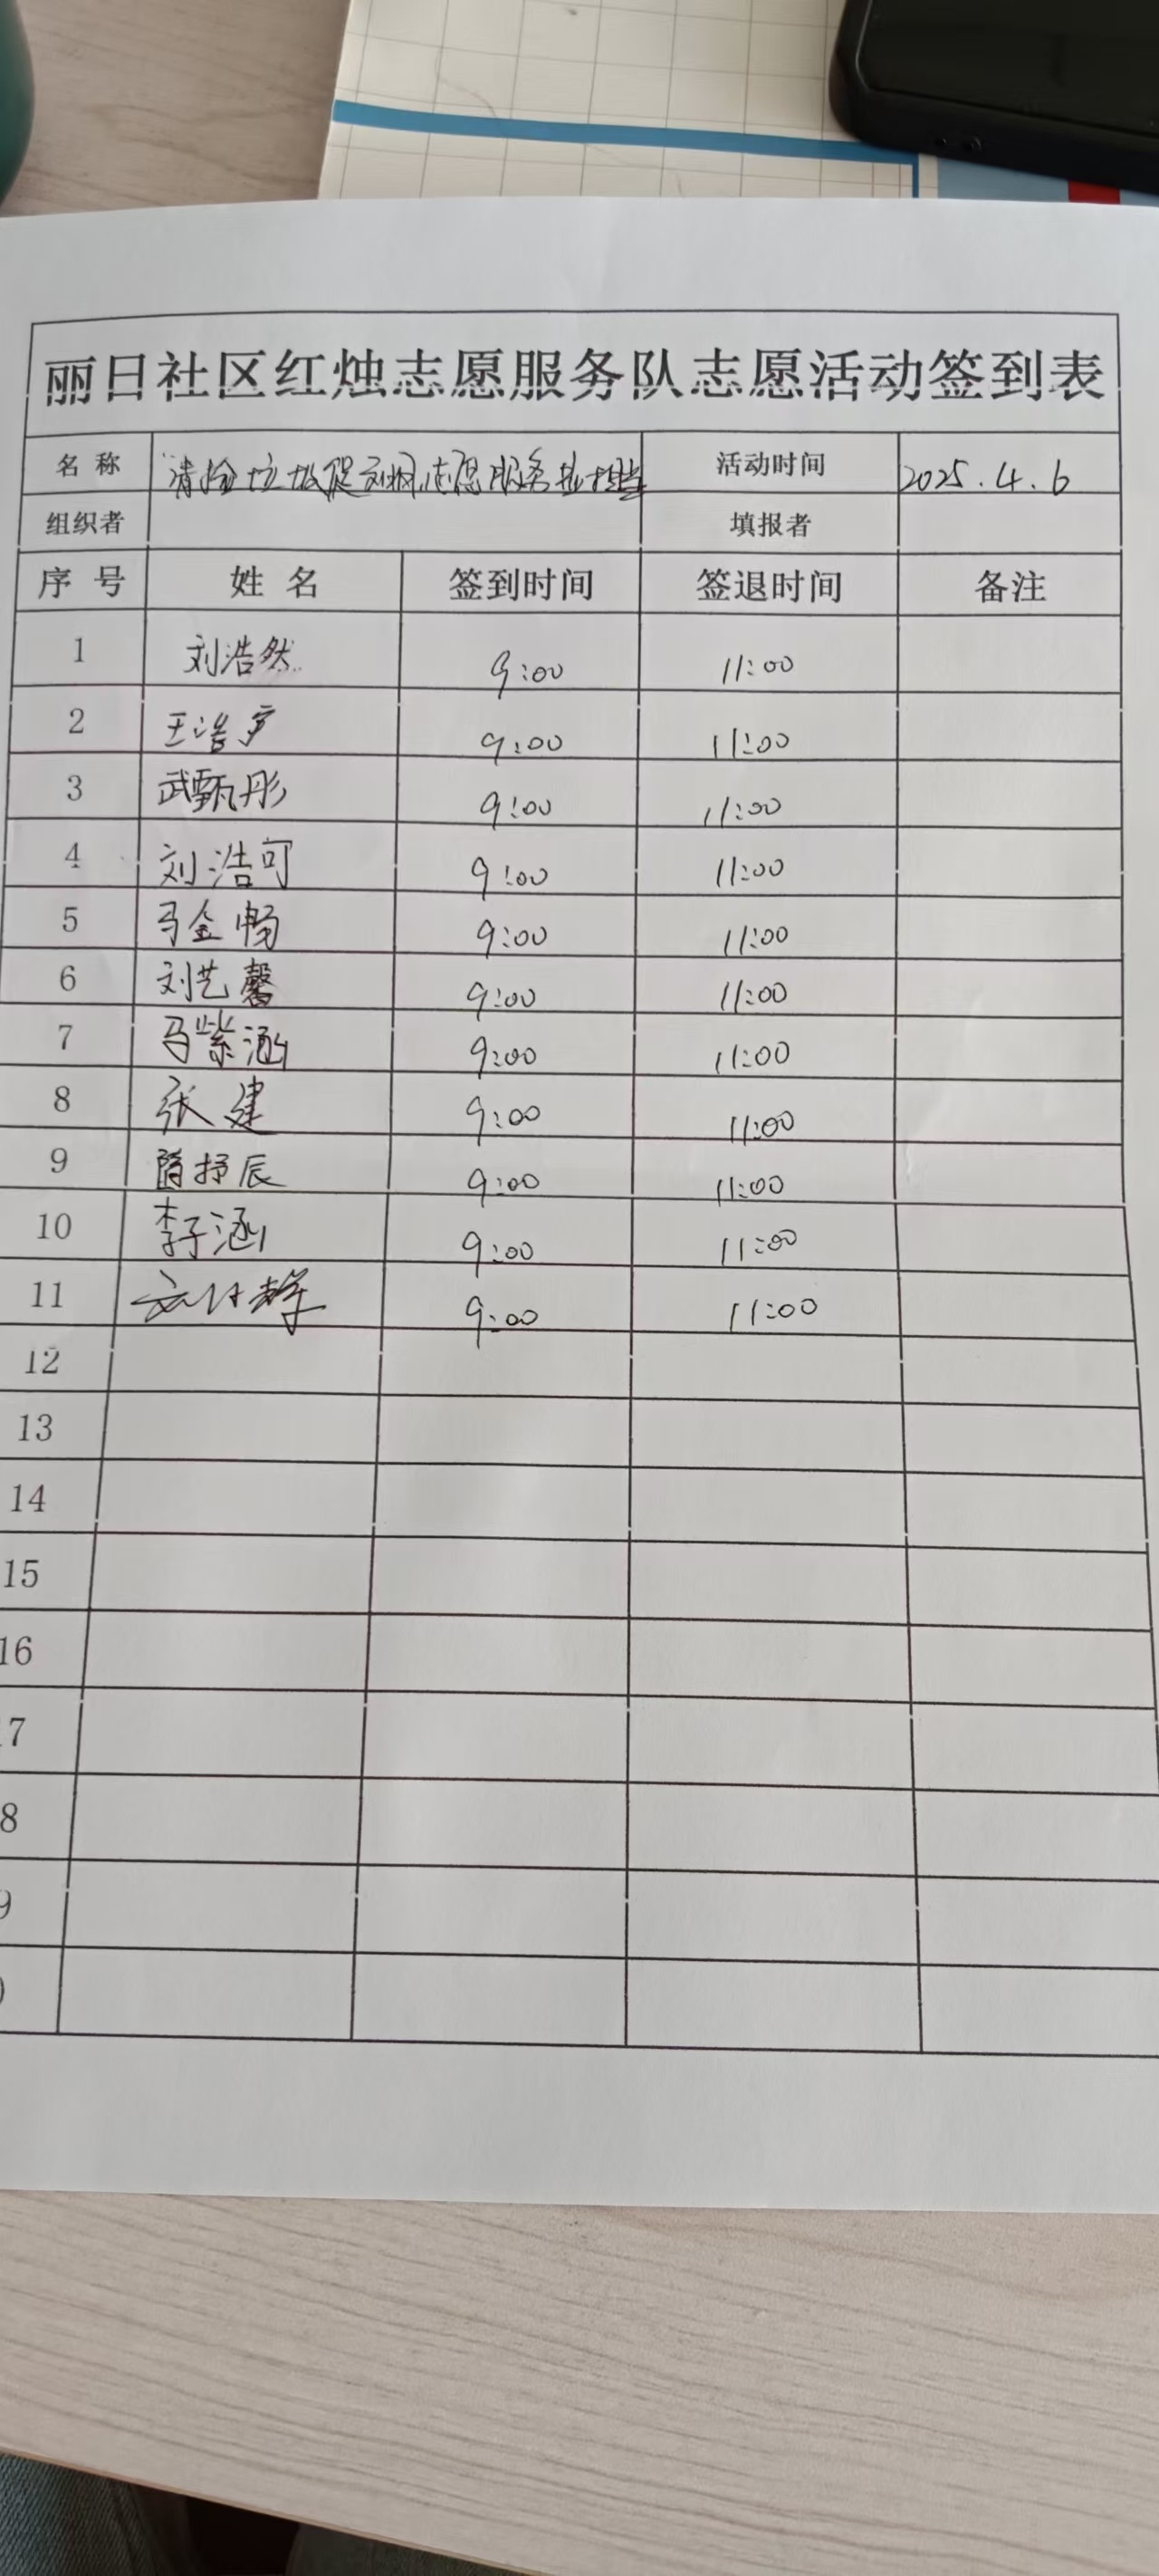 丽日社区红烛志愿服务队志愿活动签到表
名称 清捡垃圾促文明 志愿服务我担当 活动时间 2025.4.6
组织者 填报者
序号 姓名 签到时间 签退时间 备注
1 刘浩然 9:00 11:00
2 王浩 9:00 11:00
3 武甄彤 9:00 11:00
4 刘浩可 9:00 11:00
5 马金畅 9:00 11:00
6 刘艺馨 9:00 11:00
7 马紫涵 9:00 11:00
8 张建 9:00 11:00
9 隋抒辰 9:00 11:00
10 李子涵 9:00 11:00
11 9:00 11:00
12
13
14
15
16
7
8
9